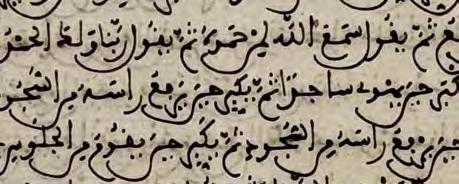 ثم يقول سمع الله لمن حمده ثم يقول ربنا ولك الحمد
يكبر حين يهوي ساجدا ثم يكبر حين يرفع راسه من السجو
حين يرفع راسه من السجود ثم يكبر حين يقوم من الجلوس